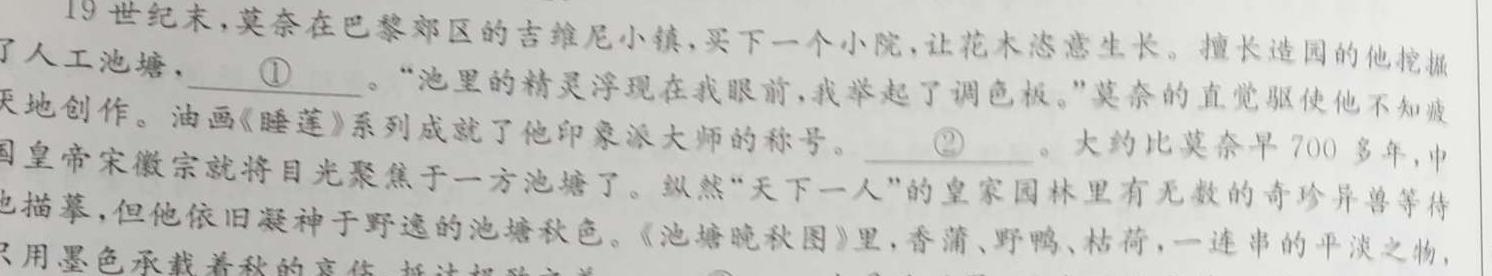 19世纪末,莫奈在巴黎郊区的吉维尼小镇,买下一个小院,让花木恣意生长。擅长造园的他挖掘
了人工池塘, ① 。“池里的精灵浮现在我眼前,我举起了调色板。”莫奈的直觉驱使他不知疲
厌地创作。油画《睡莲》系列成就了他印象派大师的称号。 ② 。大约比莫奈早700多年,中
国皇帝宋徽宗就将目光聚焦于一方池塘了。纵然“天下一人”的皇家园林里有无数的奇珍异兽等待
他描摹,但他依旧凝神于野逸的池塘秋色。《池塘晚秋图》里,香蒲、野鸭、枯荷,一连串的平淡之物,
只用墨色承载着秋的哀伤